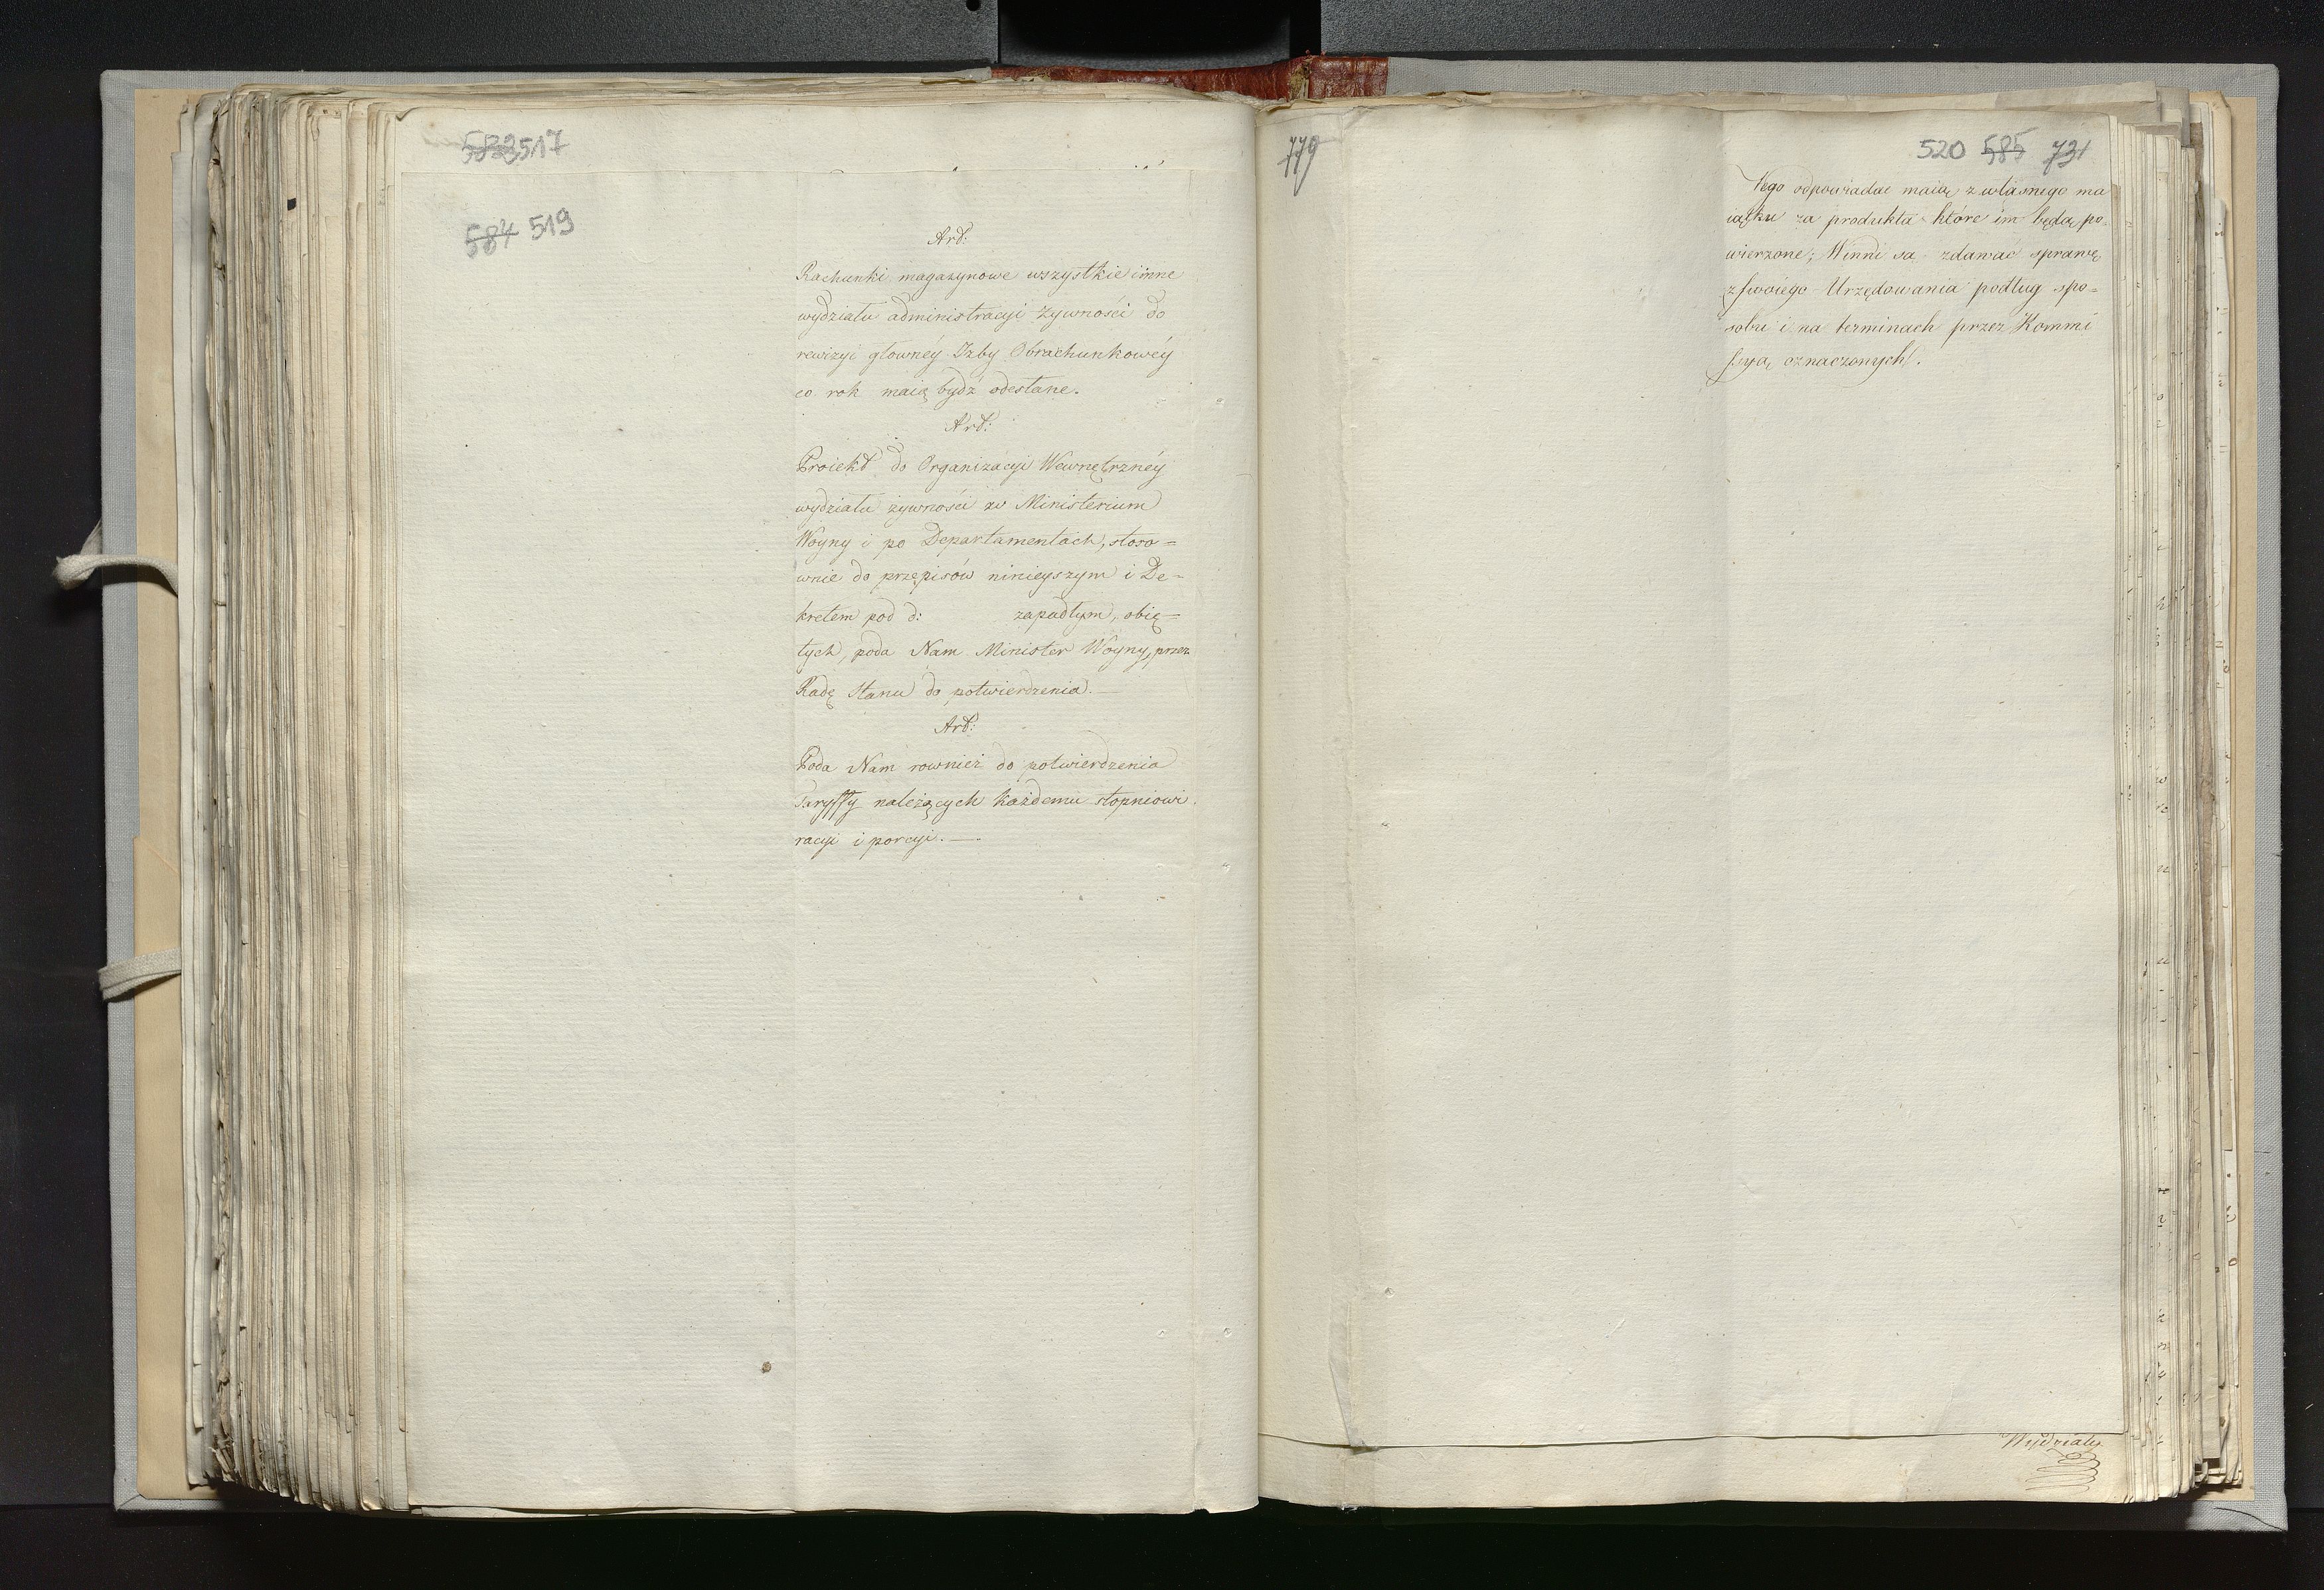 583 517
584 519
Art:
Rachunki magazynowe wszystkie inne
wydziału administracyi żywności do
rewizyi głowney Izby Obrachunkowéy
co rok maią bydź odesłane.
Art:
Proiekt do Organizacyi Wewnętrznéy
wydziału żywności w Ministerium
Woyny i po Departamentach, stoso=
wnie do przepisów ninieyszym i De=
kretem pod d: zapadłym, obię=
tych, poda Nam Minister Woyny, przez
Radę Stanu do potwierdzenia.—
Art:
Poda Nam rownież do potwierdzenia
Taryffy należących każdemu stopniowi
racyi i porcyi.—
779
520 585 731
tego odpowiadać maią z własnego ma
iątku za produkta które im będą po=
wierzone; Winni są zdawać sprawę
z swoiego Urzędowania podług spo=
sobu i na terminach przez Kommi
ssyą oznaczonych.
Wydziały